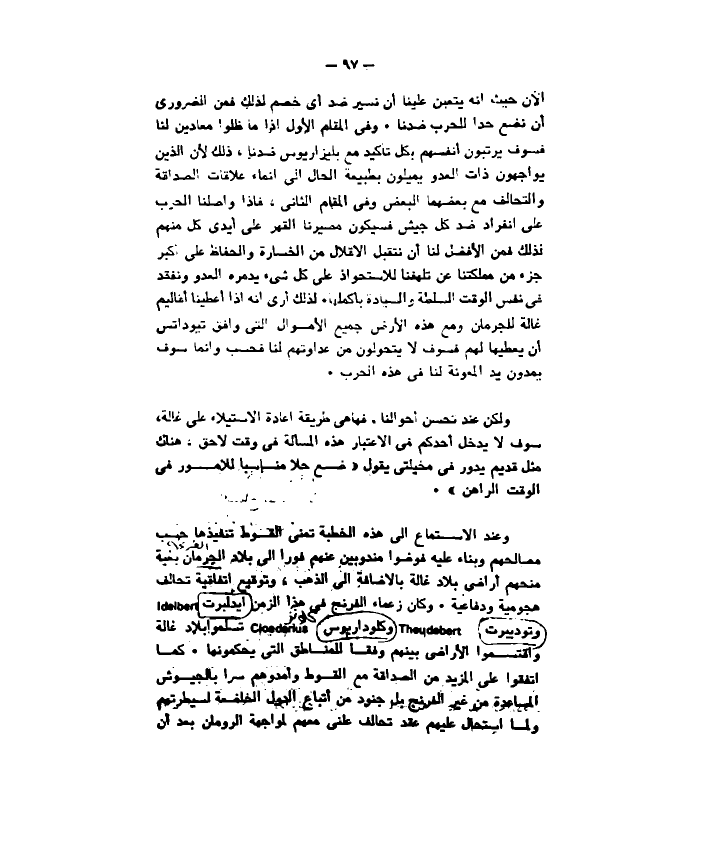 — ٩٧ —
الآن حيث انه يتعين علينا أن نسير ضد أى خصم لذلك فمن الضرورى
أن نضع حدا للحرب ضدنا ٠ وفى المقام الأول اذا ما ظلوا معادين لنا
فسوف يرتبون أنفسهم بكل تأكيد مع بليزاريوس ضدنا ، ذلك لأن الذين
يواجهون ذات العدو يميلون بطبيعة الحال الى انماء علاقات الصداقة
والتحالف مع بعضهما البعض وفى المقام الثانى ، فاذا واصلنا الحرب
على انفراد ضد كل جيش فسيكون مصيرنا القهر على أيدى كل منهم
لذلك فمن الأفضل لنا أن نتقبل الاقلال من الخسارة والحفاظ على أكبر
جزء من مملكتنا عن تلهفنا للاستحواذ على كل شىء يدمره العدو ونفقد
فى نفس الوقت السلطة والسيادة بأكملها، لذلك أرى انه اذا أعطينا أقاليم
غالة للجرمان ومع هذه الأرض جميع الأموال التى وافق تيوداتس
أن يعطيها لهم فسوف لا يتحولون من عداوتهم لنا فحسب وانما سوف
يمدون يد المعونة لنا فى هذه الحرب ٠
ولكن عند تحسن أحوالنا . فهاهى طريقة اعادة الاستيلاء على غالة،
سوف لا يدخل أحدكم فى الاعتبار هذه المسألة فى وقت لاحق ، هناك
مثل قديم يدور فى مخيلتى يقول « ضع حلا مناسبا للامور فى
الوقت الراهن » ٠
وعند الاستماع الى هذه الخطبة تمنى القوط تنفيذها حسب
مصالحهم وبناء عليه فوضوا مندوبين عنهم فورا الى بلاد الجرمان بغية
منحهم أراضى بلاد غالة بالاضافة الى الذهب ، وتوقيع اتفاقية تحالف
هجومية ودفاعية ٠ وكان زعماء الفرنج فى هذا الزمن ايدلبرت Idelbert
وتودبيرت Theudebert وكلوداريوس Cloedarius تسلموا بلاد غالة
واقتسموا الأراضى بينهم وفقا للمناطق التى يحكمونها ٠ كما
اتفقوا على المزيد من الصداقة مع القوط وأمدوهم سرا بالجيوش
المساعدة من غير الفرنج بل جنود من أتباع الدول الخاضعة لسيطرتهم
ولما استحال عليهم عقد تحالف علنى معهم لمواجهة الرومان بعد أن